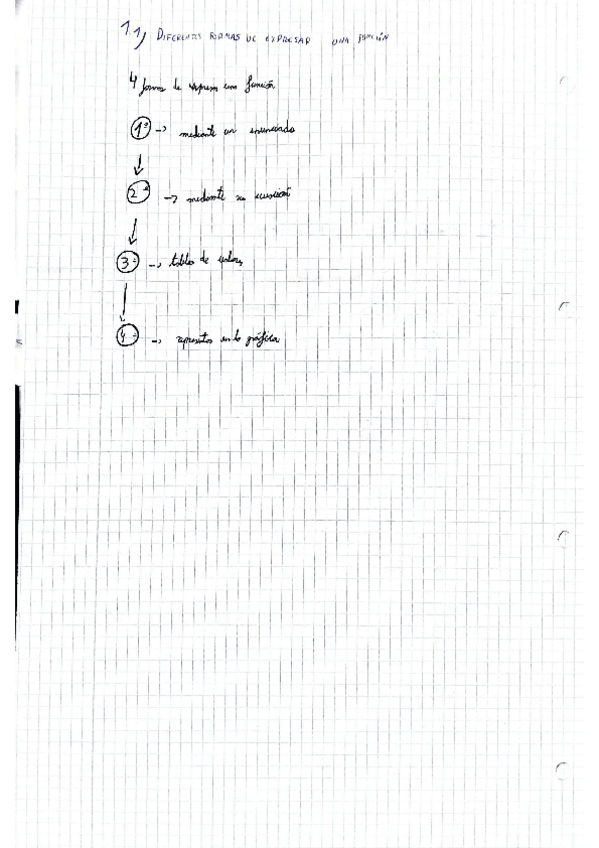 1.1) DIFERENTES FORMAS DE EXPRESAR UNA FUNCIÓN
4 formas de expresar una función
1º -> mediante un enunciado
2ª -> mediante su ecuación
3ª -> tablas de valores
4ª -> en la gráfica